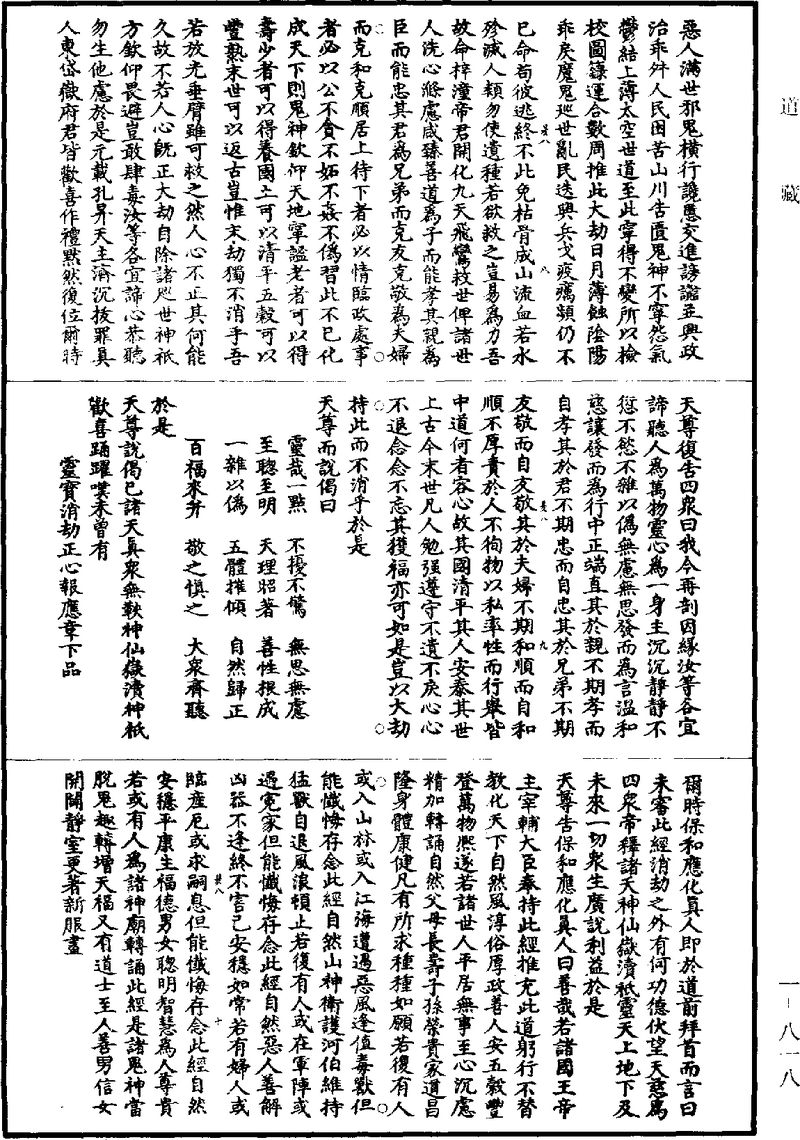 道藏
惡人滿世邪鬼橫行讒慝交進謗讟並興政
治乖舛人民困苦山川告匱鬼神不寧怨氣
鬱結上薄太空世道至此寧得不變所以檢
校圖籙運合數周推此大劫日月薄蝕陰陽
乖戾魔鬼廵世亂民迭興兵戈疫癘頻仍不
已命苟彼逃終不此免枯骨成山流血若水
殄滅人類勿使遺種若欲救之豈易為力吾
故命梓潼帝君開化九天飛鸞救世俾諸世
人洗心滌慮咸臻善道為子而能孝其親為
臣而能忠其君為兄弟而克友克敬為夫婦
而克和克順居上待下者必以情臨政處事
者必以公不貪不妬不姦不偽習此不已化
成天下則鬼神欽仰天地寧謐老者可以得
壽少者可以得養國土可以清平五穀可以
豐熟末世可以返古豈惟末劫獨不消乎吾
若放光垂臂雖可救之然人心不正其何能
久故不若人心旣正大劫自除諸廵世神祇
方欽仰畏避豈敢肆毒汝等各宜諦心恭聽
勿生他慮於是元載孔昇天主濟沉拔罪真
人東岱嶽府君皆歡喜作禮默然復位爾時
天尊復告四衆曰我今再剖因緣汝等各宜
諦聽人為萬物靈心為一身主沉沉靜靜不
愆不慾不雜以偽無慮無思發而為言溫和
慈讓發而為行中正端直其於親不期孝而
自孝其於君不期忠而自忠其於兄弟不期
友敬而自友敬其於夫婦不期和順而自和
順不厚責於人不徇物以私率性而行舉皆
中道何者容心故其國清平其人安泰其世
上古今末世凡人勉强遵守不遺不戾心心
不退念念不忘其獲福亦可如是豈以大劫
持此而不消乎於是
天尊而說偈曰
靈哉一點 不擾不驚 無思無慮
至聰至明 天理昭著 善性根成
一雜以偽 五體摧傾 自然歸正
百福來并 敬之慎之 大衆齊聽
於是
天尊說偈已諸天真衆無鞅神仙嶽瀆神祇
歡喜踊躍嘆未曾有
靈寶消劫正心報應章下品
爾時保和應化真人即於道前拜首而言曰
未審此經消劫之外有何功德伏望天慈為
四衆帝釋諸天神仙嶽瀆祇靈天上地下及
未來一切衆生廣說利益於是
天尊告保和應化真人曰善哉若諸國王帝
主宰輔大臣奉持此經推充此道躬行不替
教化天下自然風淳俗厚政善人安五穀豐
登萬物熙遂若諸世人平居無事至心沉慮
精加轉誦自然父母長壽子孫榮貴家道昌
隆身體康健凡有所求種種如願若復有人
或入山林或入江海遭遇惡風逢值毒獸但
能懺悔存念此經自然山神衛護河伯維持
猛獸自退風浪頓止若復有人或在軍陣或
遇寃家但能懺悔存念此經自然惡人善解
凶器不逢終不害己安穩如常若有婦人或
臨產厄或求嗣息但能懺悔存念此經自然
安穩平康生福德男女聰明智慧為人尊貴
若或有人為諸神廟轉誦此經是諸鬼神當
脫鬼趣轉增天福又有道士至人善男信女
開闢靜室更著新服盡
一-八一八